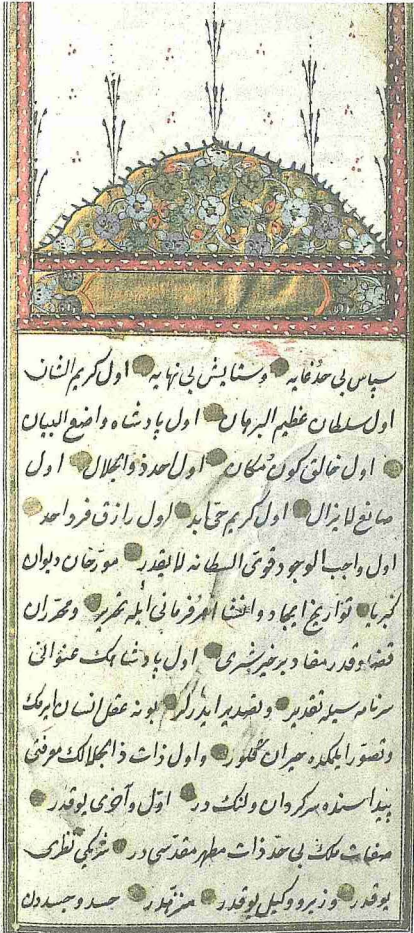 سپاس بی حدّ غایه و ستایش بی نهایه اول کریم الشان
اول سلطان عظیم البرهان اول پادشاه واضع البیان
اول خالق کون و مکان اول احد ذو الجلال اول
صانع لا یزال اول کریم حیّ ابد اول رازق فرد احد
اول واجب الوجود قوی السلطانه لا یقدر مورّخان دیوان
کبریا تواریخ ایجاد و انشا امر فرمانی ایله تحریر و محرّران
قضا و قدر مفاد بر خیر شری اول پادشاهک عنوانی
سرنامه سیله تقدیر و تصدیر ایدرلر بونه عقل انسان ایرمک
و تصوّر ایلمکده حیران کلور و اول ذات ذا الجلالک معرفتی
بیداسنده سرکردان و لنک در اوّل و آخری یوقدر
صفات ملک بی حد ذات مطهر مقدّسی در شریکی نظیری
یوقدر وزیر و وکیل یوقدر منزّهدر حسد و جسددن